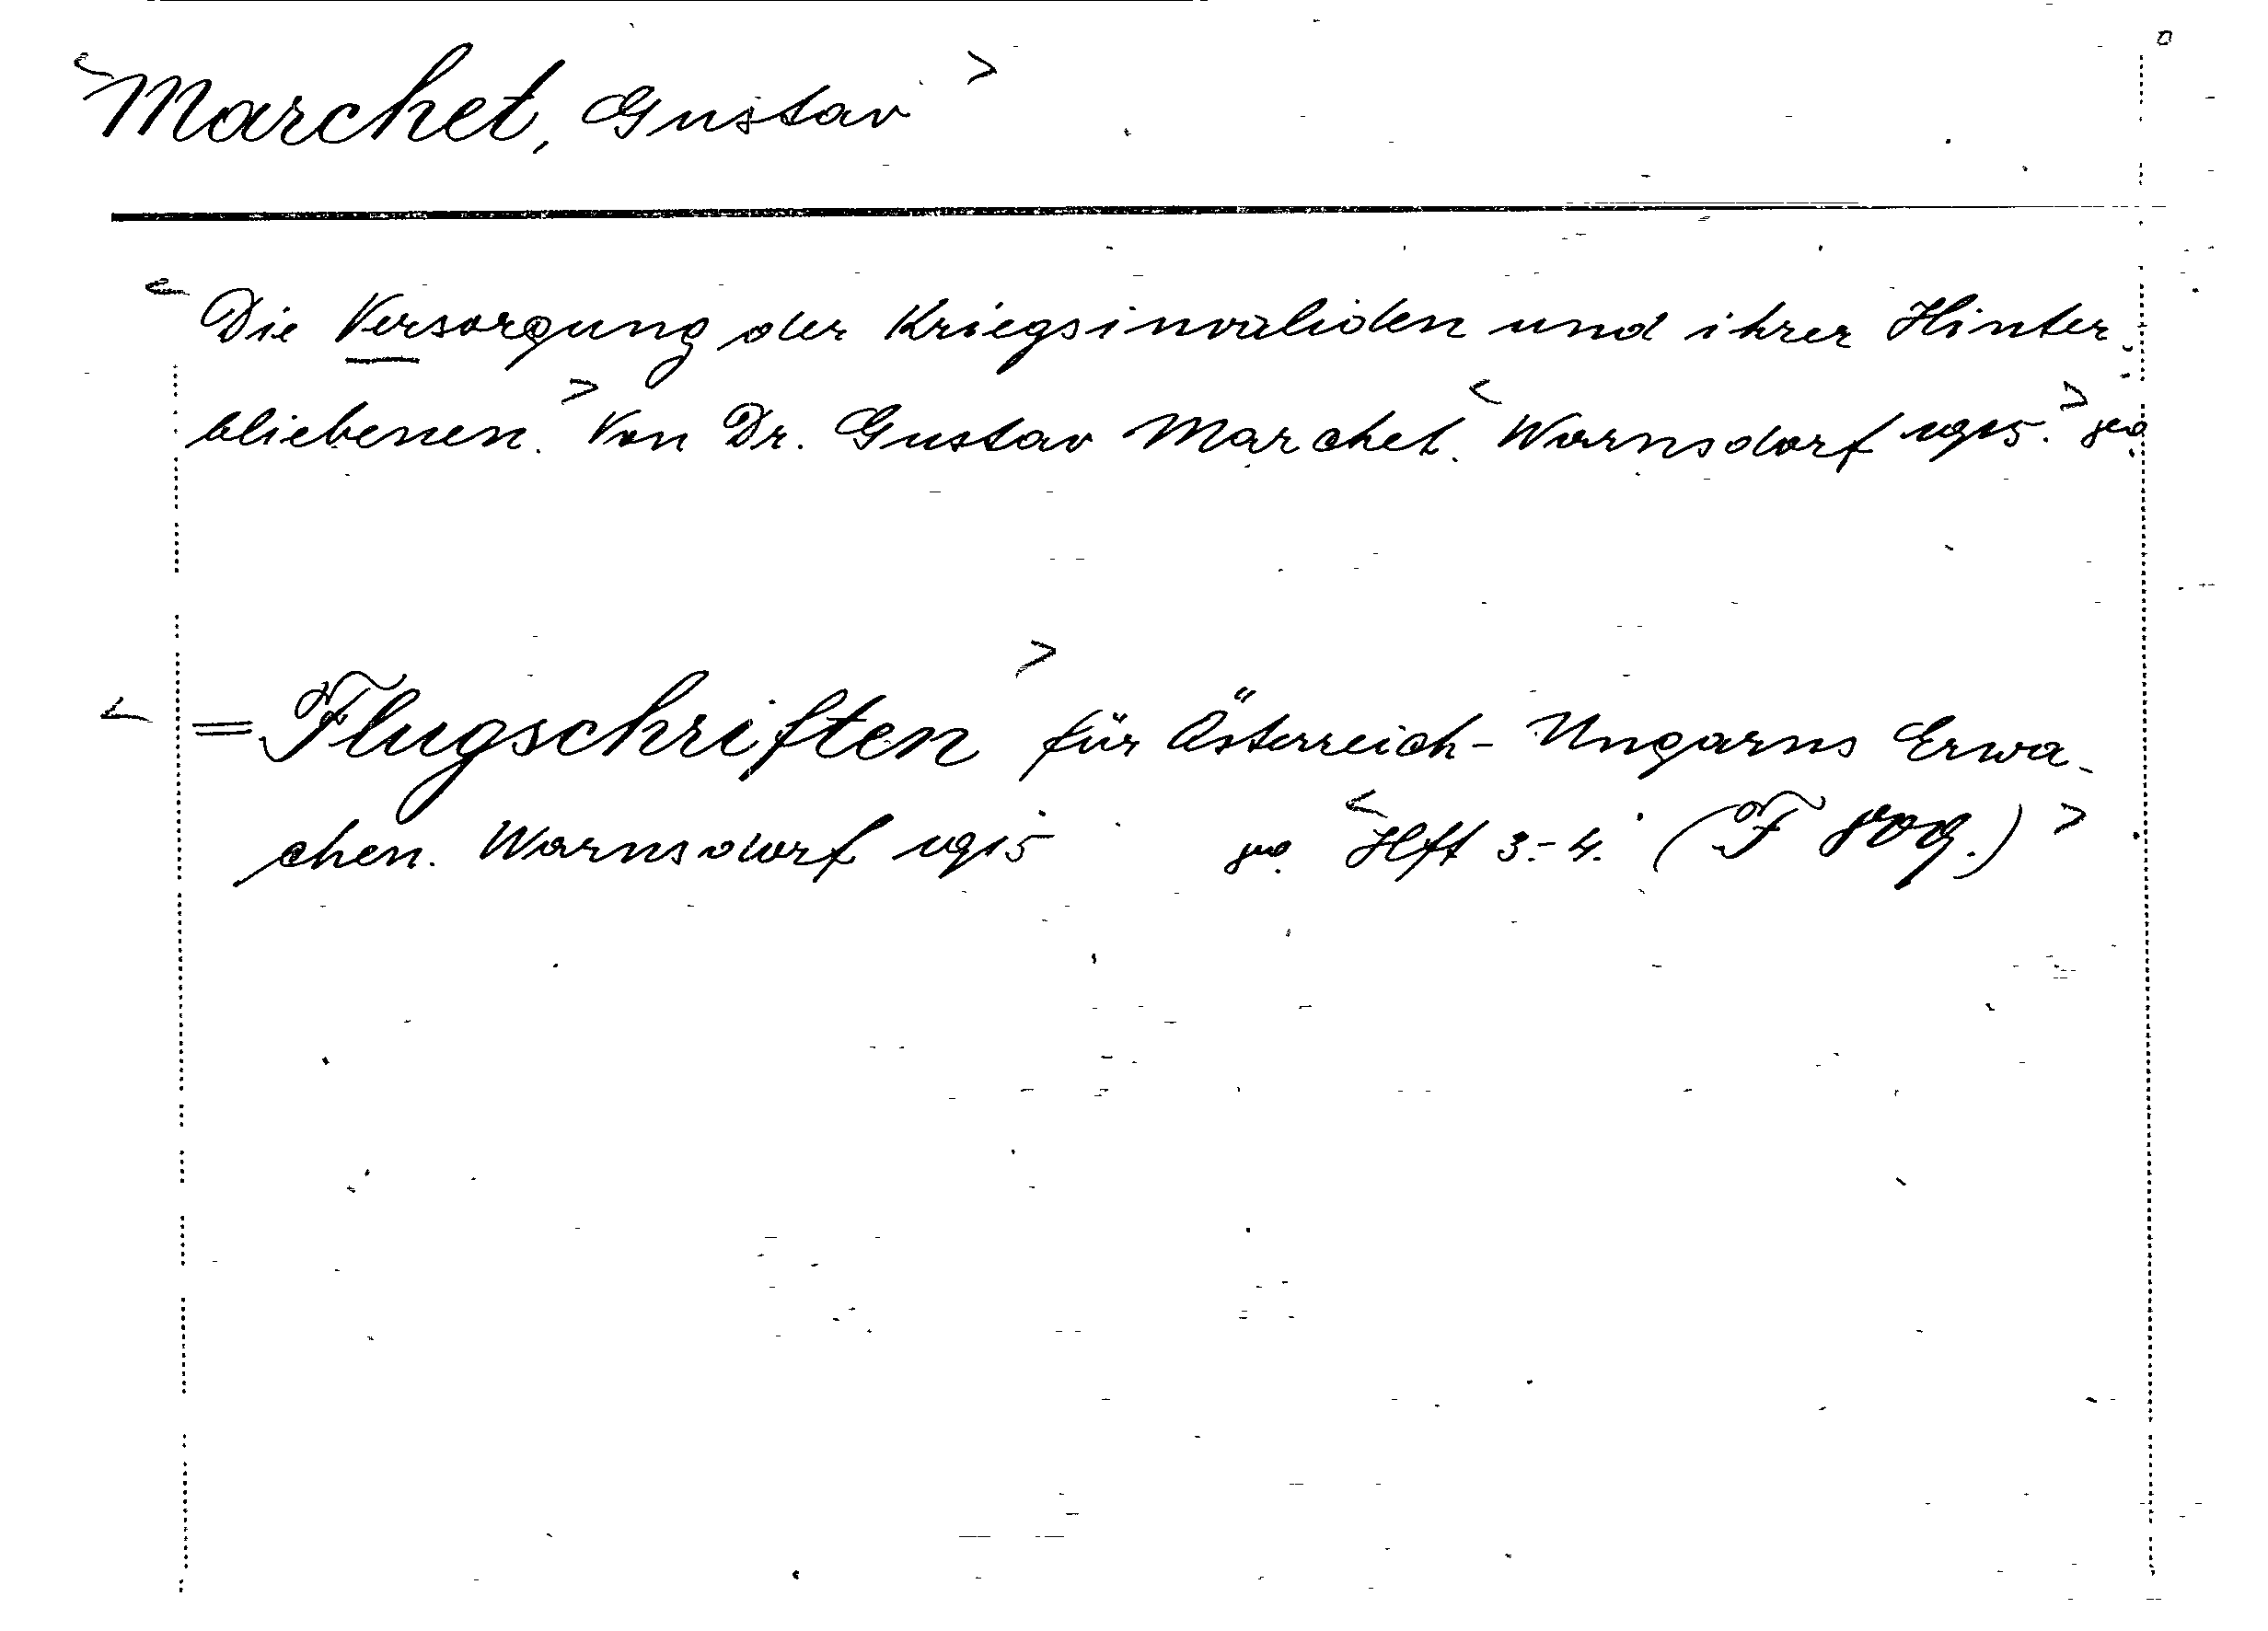 <Marchet, Gustav>
<Die Versorgung der Kriegsinvaliden und ihrer Hinter-
bliebenen.> Von Dr. Gustav Marchet. <Warnsdorf 1915.> 8°.
<=Flugschriften> für Österreich-Ungarns Erwa-
chen. Warnsdorf 1915 8°. <Hft 3.-4. (F 809.)>